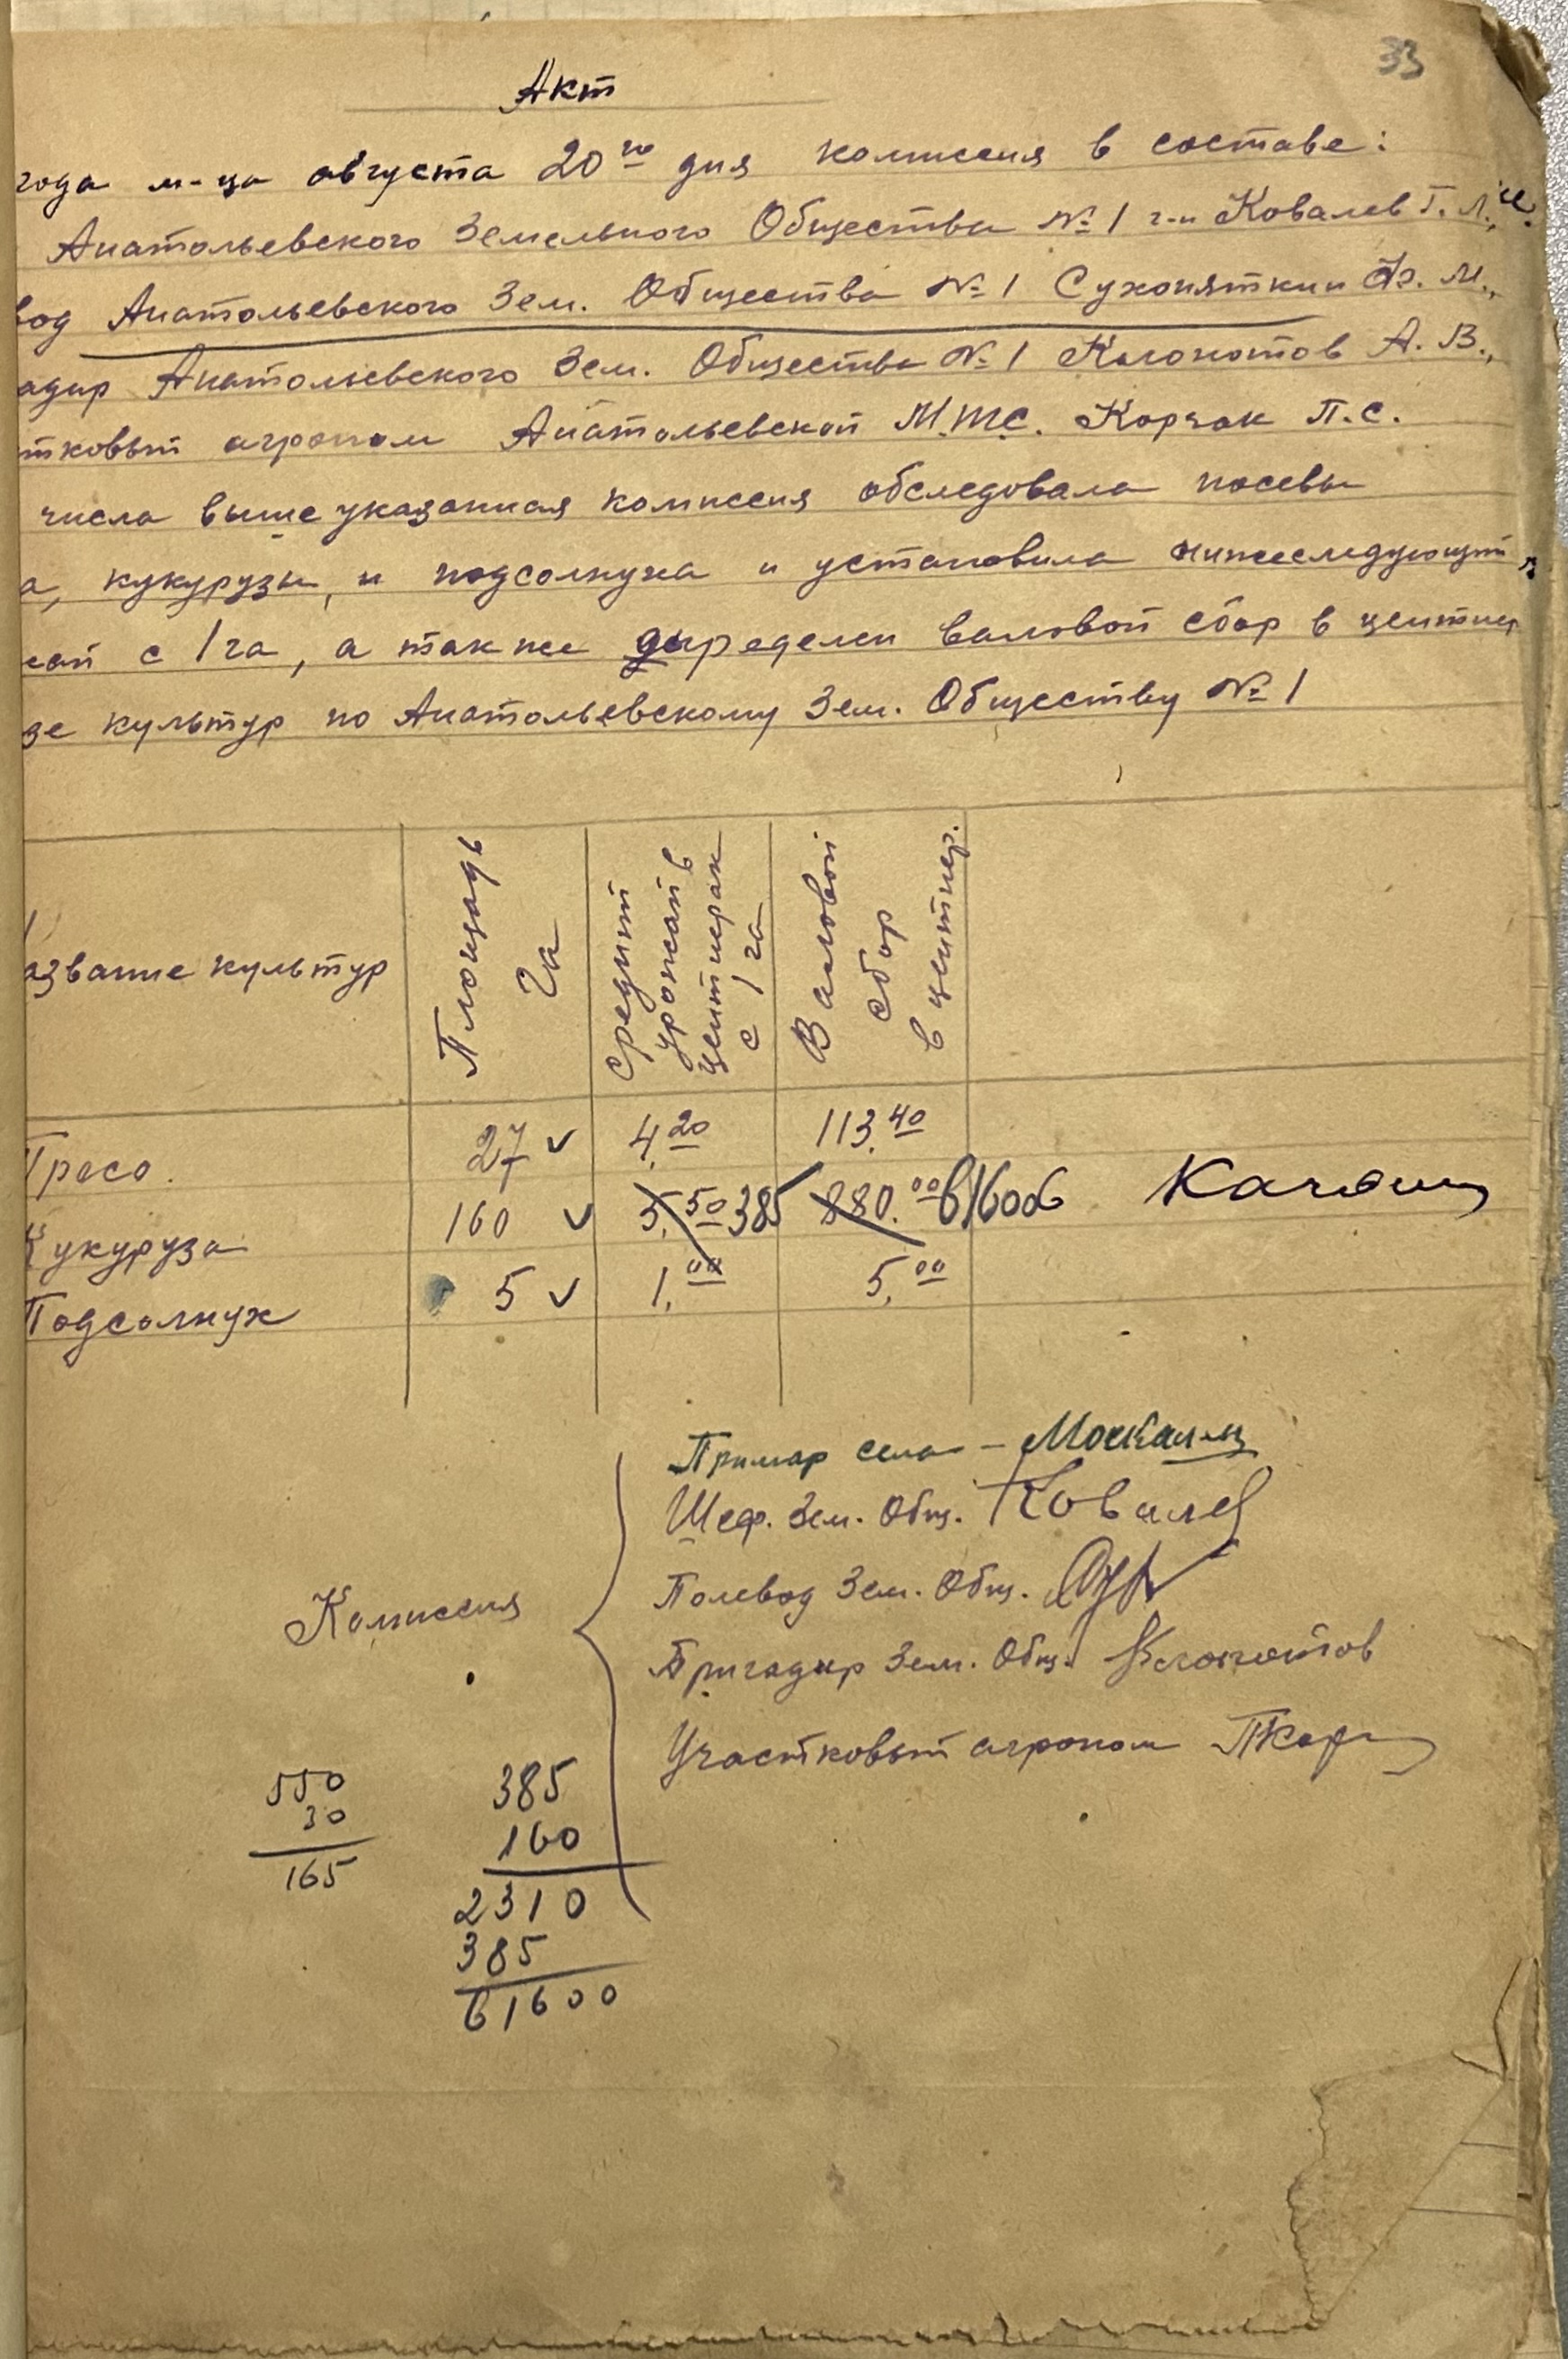 33
Акт
года м-ца августа 20го дня комиссия в составе:
Анатольевского Земельного Общества №1 г-н Ковалев Г. Л.,
вод Анатольевского Зем. Общества №1 Сухопяткин Ф. М.,
адир Анатольевского Зем. Общества №1 Клопотов А. В.,
тковый агроном Анатольевской М.Т.С. Корчак П. С.
числа выше указанная комиссия обследовала посевы
а, кукурузы, и подсолнуха и установила нижеследующий
жай с 1 га, а также определен валовой сбор в центнер
зе культур по Анатольевскому Зем. Обществу №1
азвание культур | Площадь га | Средний урожай в центнерах с 1 га | Валовой сбор в центнер.
Просо. 27 ✓ 4,20 113,40
Кукуруза 160 ✓ 5,50 385 880,00 61600
Подсолнух 5 ✓ 1,00 5,00
Комиссия
Примар села –
Шеф. Зем. Общ. Ковалев
Полевод Зем. Общ.
Бригадир Зем. Общ. Клопотов
Участковый агроном ПКорч
550
30
165
385
160
2310
385
61600